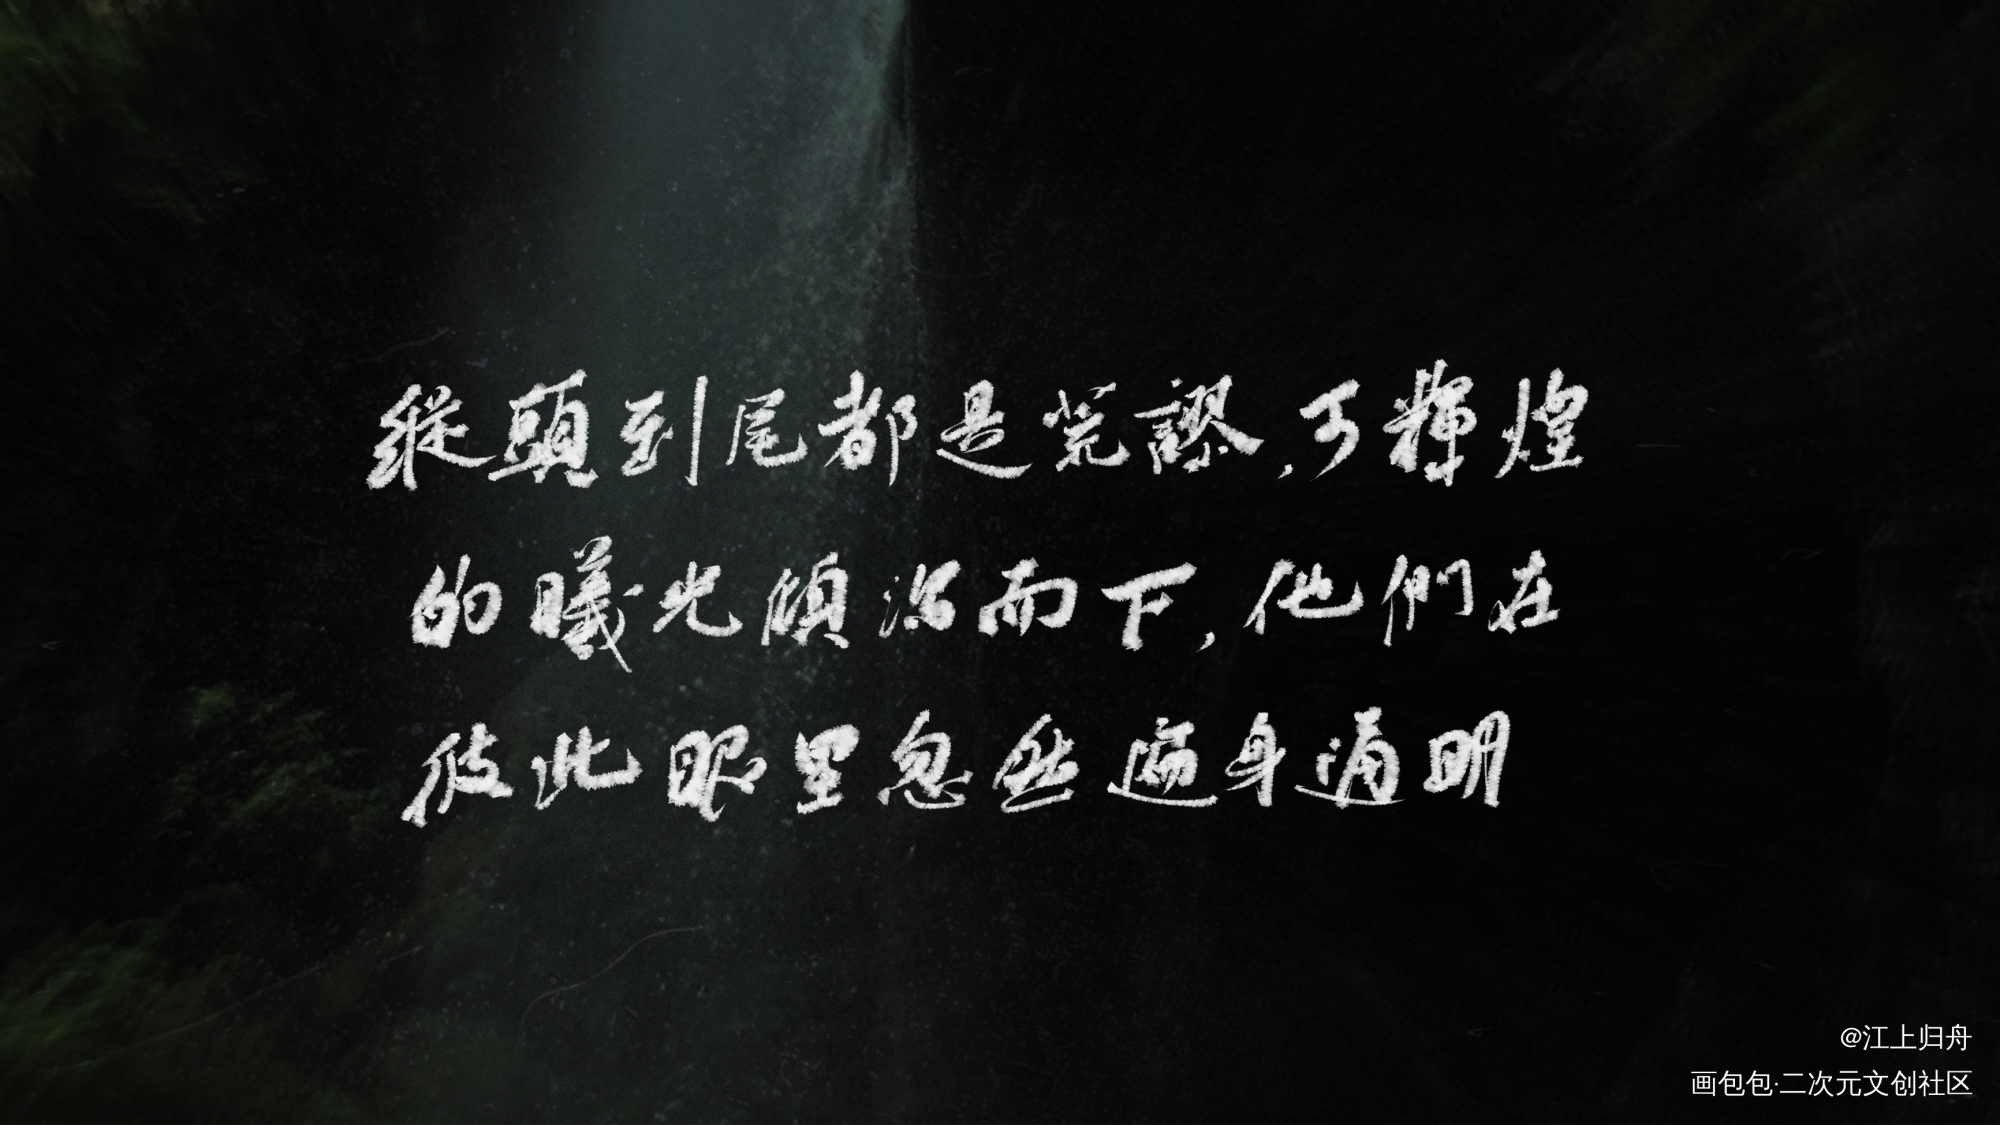 從頭到尾都是荒謬,可輝煌
的曦光傾瀉而下,他們在
彼此眼里忽然遍身通明
@江上归舟
画包包·二次元文创社区